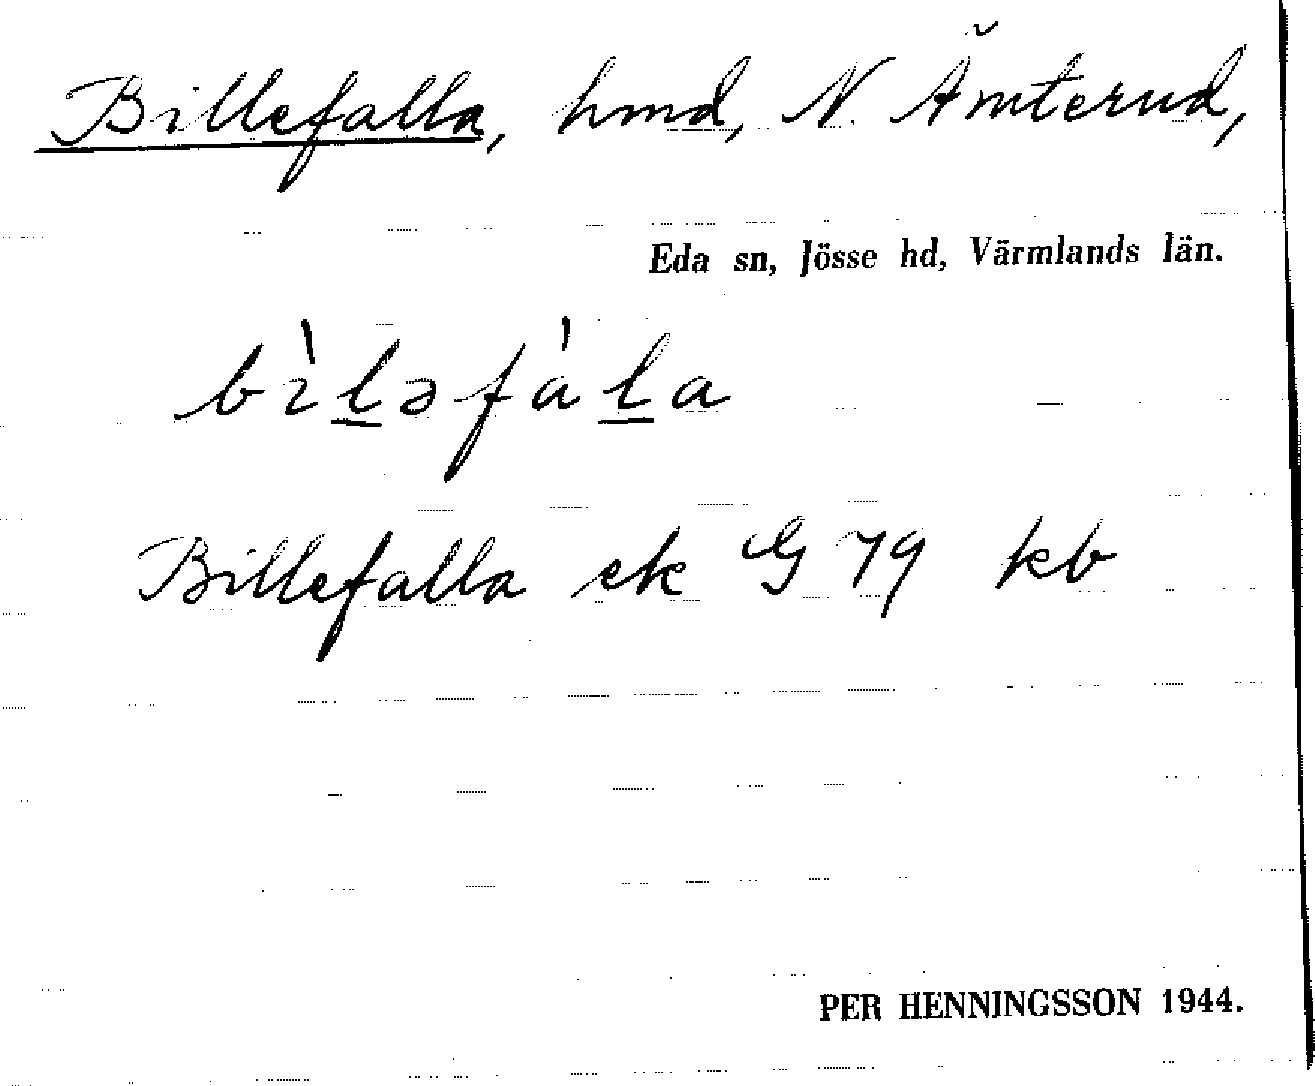 Billefalla, hmd, N. Ämterud,
Eda sn, Jösse hd, Värmlands län.
bìl̲əfàl̲a
Billefalla ek G 79 kb
PER HENNINGSSON 1944.